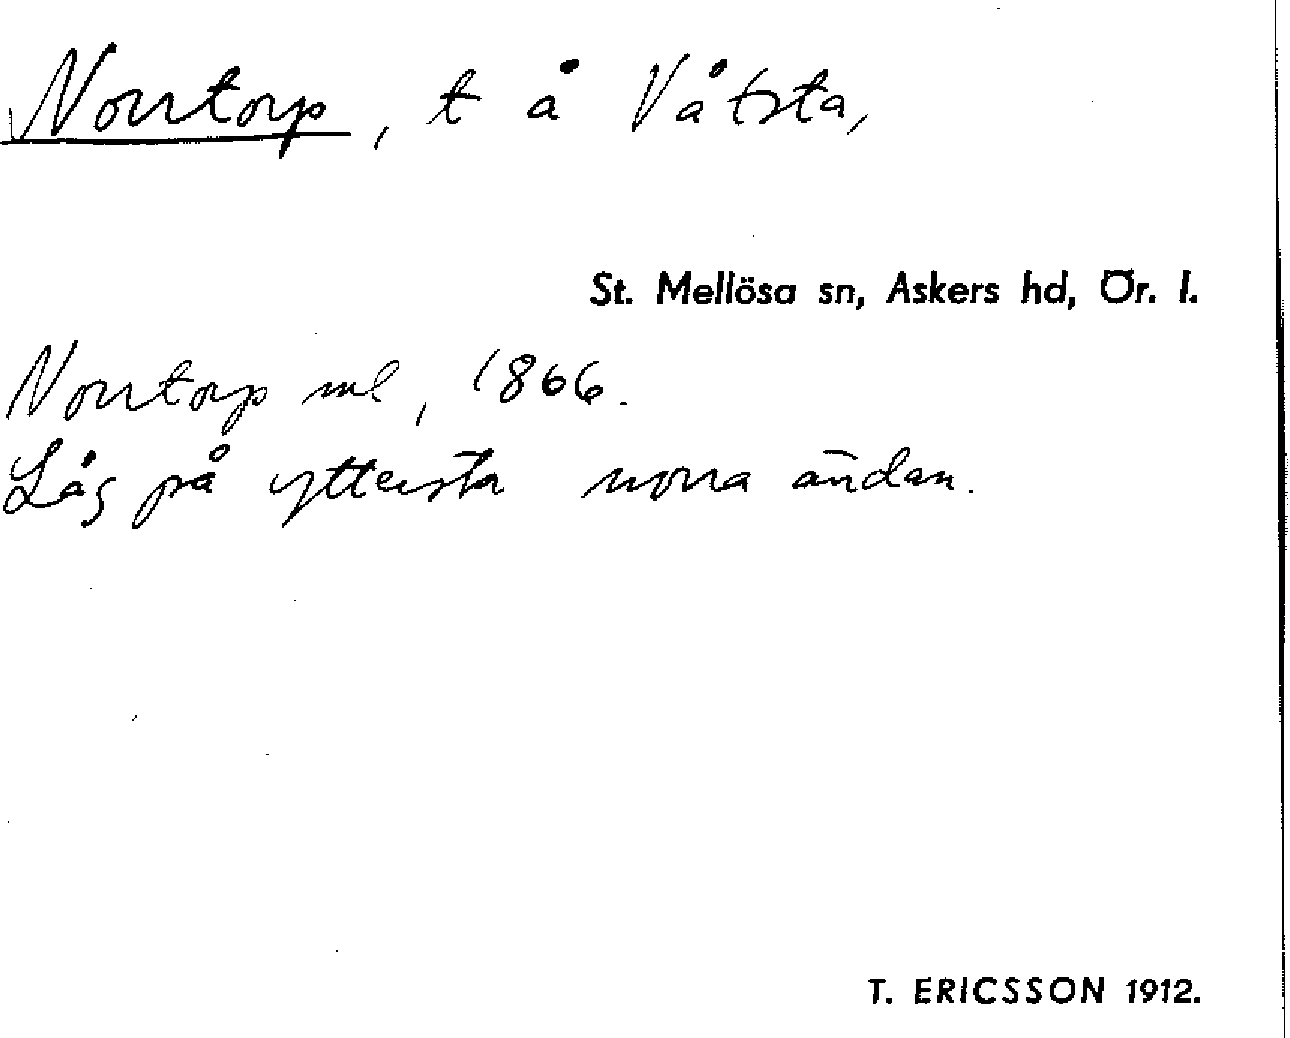 Norrtorp, t å Våtsta,
St. Mellösa sn, Askers hd, Ör. l.
Norrtorp ml, 1866.
Låg på yttersta norra ändan.
T. ERICSSON 1912.